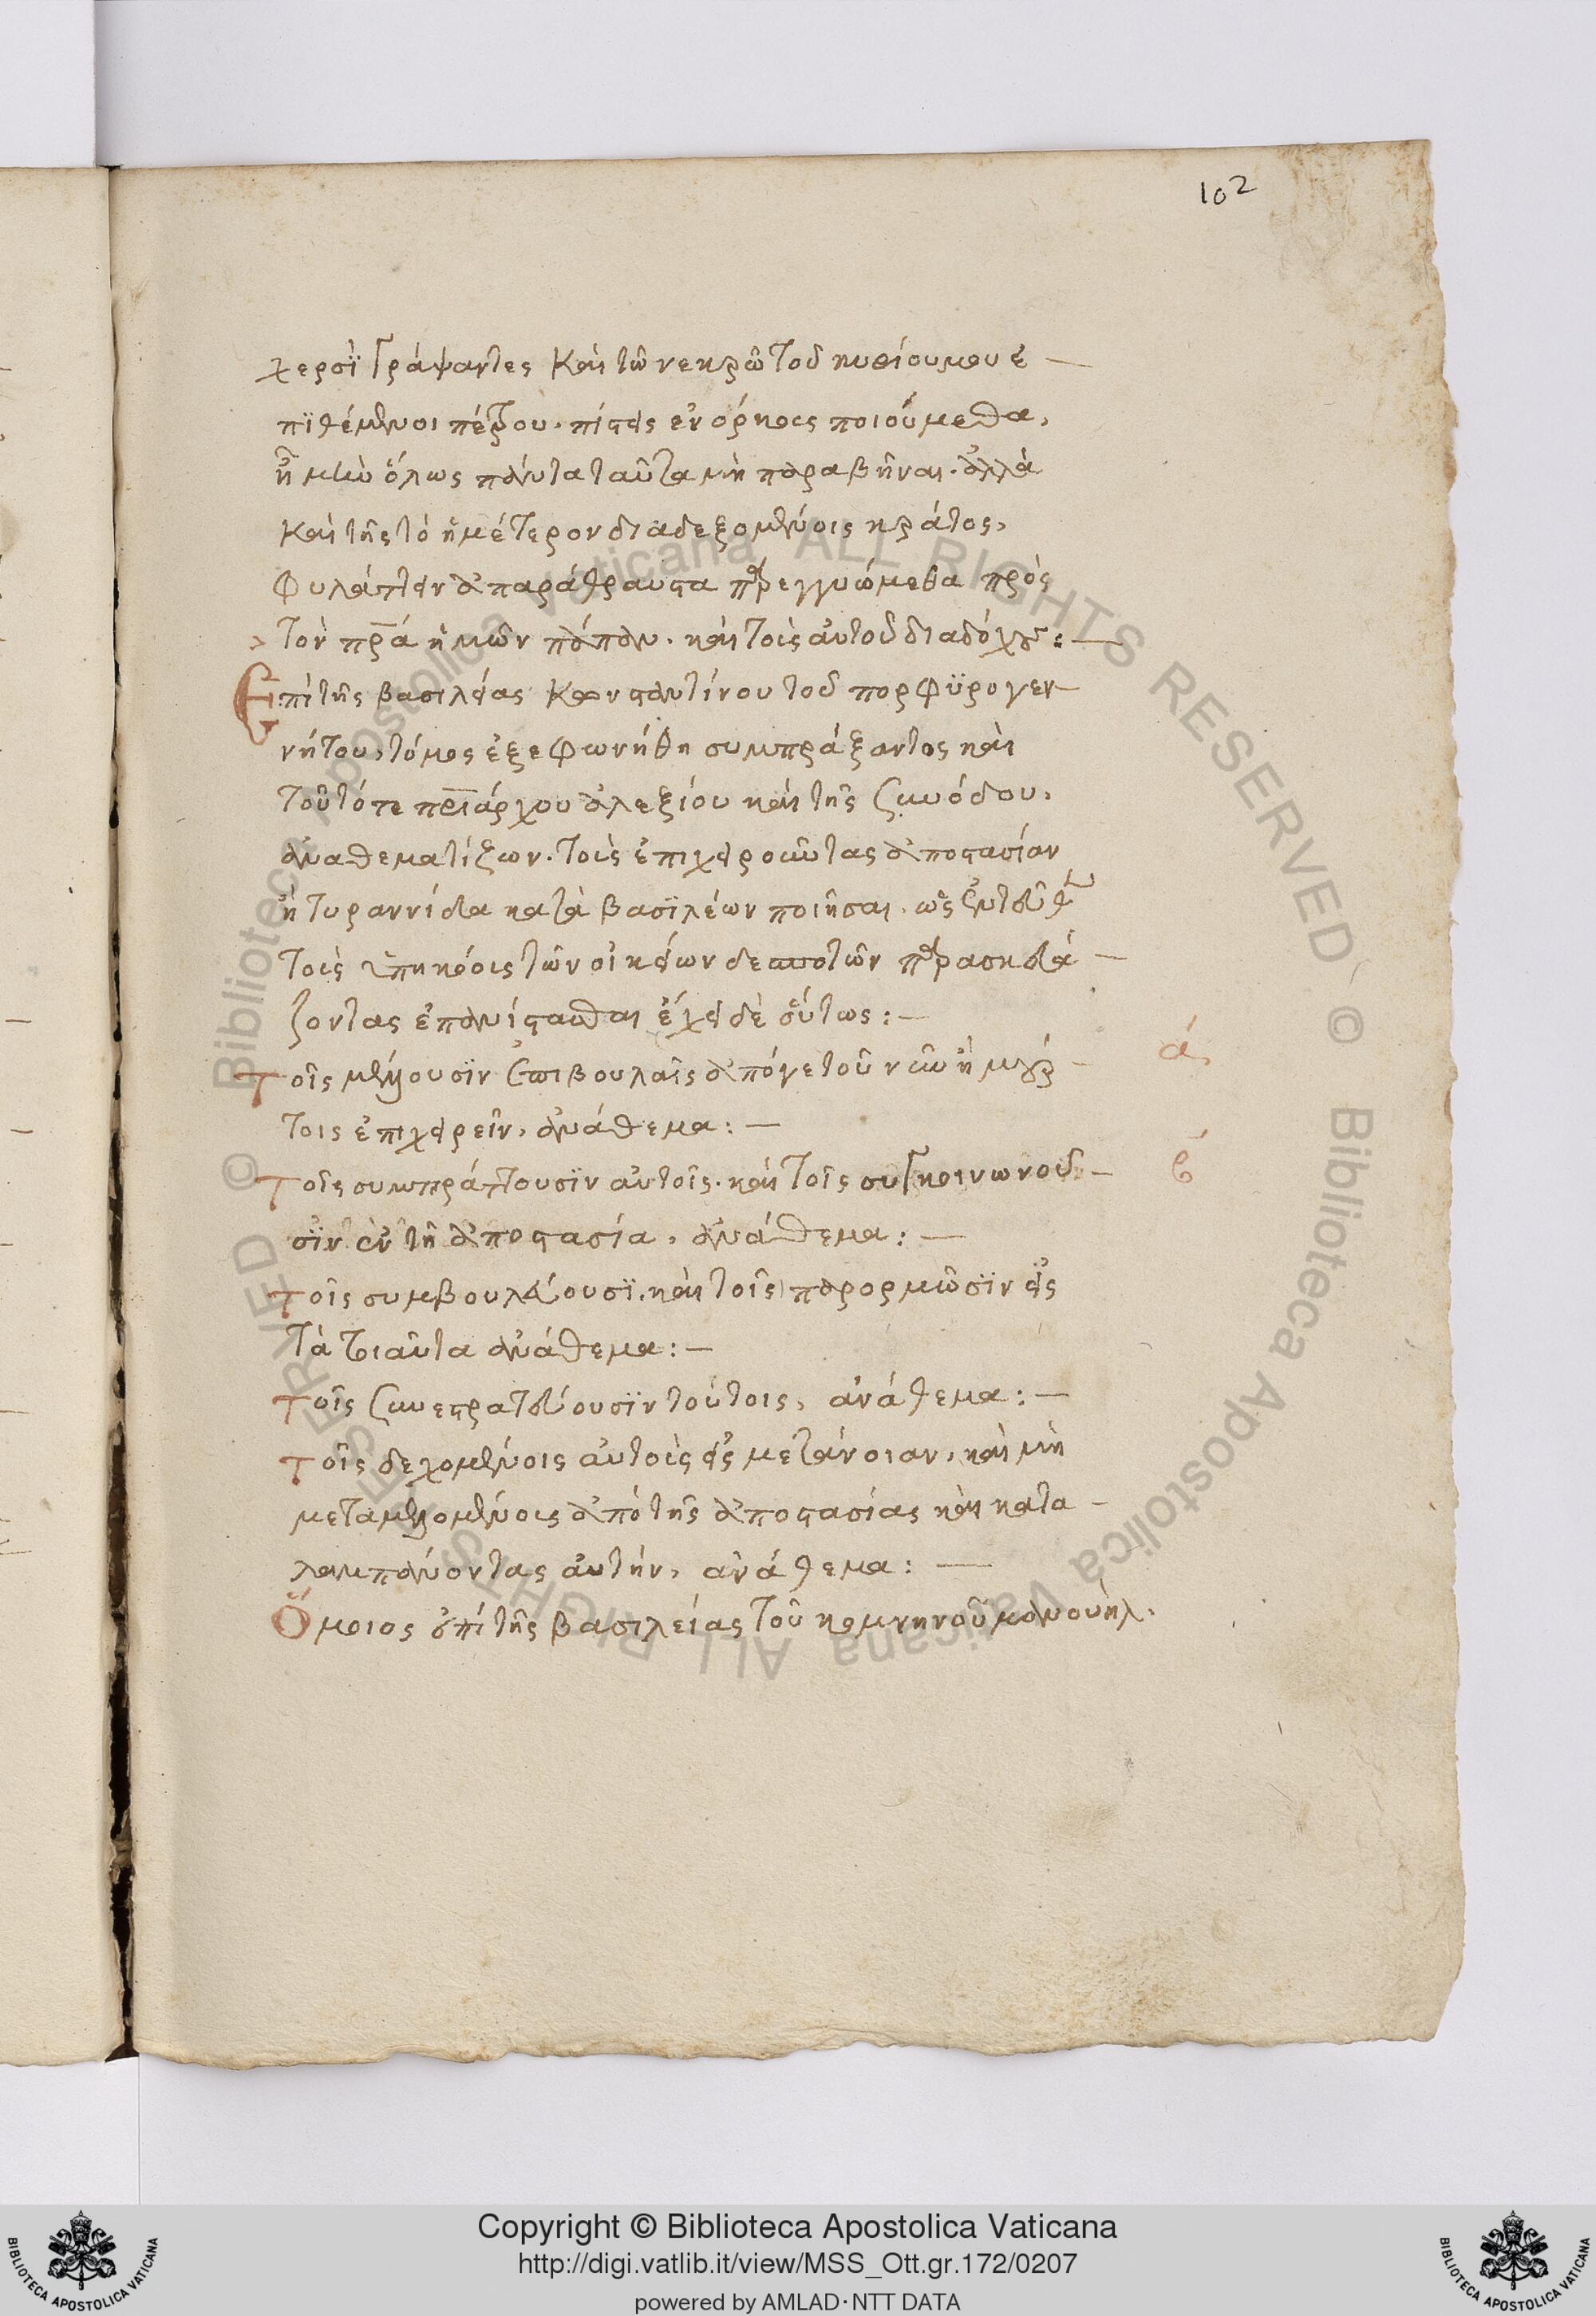 102
χερσὶ γράψαντες καὶ τῶ νεκρῶ τοῦ κυρίου μου ἐ
πιθέμενοι πέτρου. πίστεις ἐνόρκοις ποιούμεθα,
ἦ μὴν ὅλως πάντα ταῦτα μὴ παραβῆναι. ἀλλὰ
καὶ τῆς τὸ ἡμέτερον διαδεξομένοις κράτος,
φυλάττειν ἀπαράθραυστα παρεγγυώμεθα πρὸς
τὸν πρα ἡμῶν πάπαν. καὶ τοὺς αὐτοῦ διαδόχους:
Ἐπὶ τῆς βασιλείας κωνσταντίνου τοῦ πορφυρογεν
νήτου, τόμος ἐξεφωνήθη συμπράξαντος καὶ
τοῦ τότε πριάρχου ἀλεξίου καὶ τῆς συνόδου,
ἀναθεματίζων. τοὺς ἐπιχειροῦντας ἀποστασίαν
ἢ τυραννίδα κατὰ βασιλέων ποιῆσαι. ὡς
τοὺς ὑπηκόοις τῶν οἰκείων δεσποτῶν παρασκευά
ζοντας ἐπανίστασθαι ἔχει δὲ οὕτως:
Τοῖς μέλλουσιν ἐπιβουλαῖς ἀπό γε τοῦ νῦν ἢ μούρ
τοις ἐπιχειρεῖν, ἀνάθεμα:
ά
Τοῖς συμπράττουσιν αὐτοῖς. καὶ τοῖς συγκοινωνοῦ
β
σιν ἐν τῆ ἀποστασία, ἀνάθεμα:
Τοῖς συμβουλεύουσι. καὶ τοῖς παρορμῶσιν εἰς
τὰ τοιαῦτα ἀνάθεμα:
Τοῖς συνεστρατεύουσιν τούτοις, ἀνάθεμα:
Τοῖς δεχομένοις αὐτοὺς εἰς μετάνοιαν, καὶ μὴ
μεταμελλομένοις ἀπὸ τῆς ἀποστασίας καὶ κατα
λαμπάνοντας αὐτὴν, ἀνάθεμα:
Ὅμοιος ἐπὶ τῆς βασιλείας τοῦ κομνηνοῦ μανουὴλ.
Copyright © Biblioteca Apostolica Vaticana
http://digi.vatlib.it/view/MSS_Ott.gr.172/0207
powered by AMLAD·NTT DATA
BIBLIOTECA APOSTOLICA VATICANA
BIBLIOTECA APOSTOLICA VATICANA
© Biblioteca Apostolica Vaticana ALL RIGHTS RESERVED
© Biblioteca Apostolica Vaticana ALL RIGHTS RESERVED